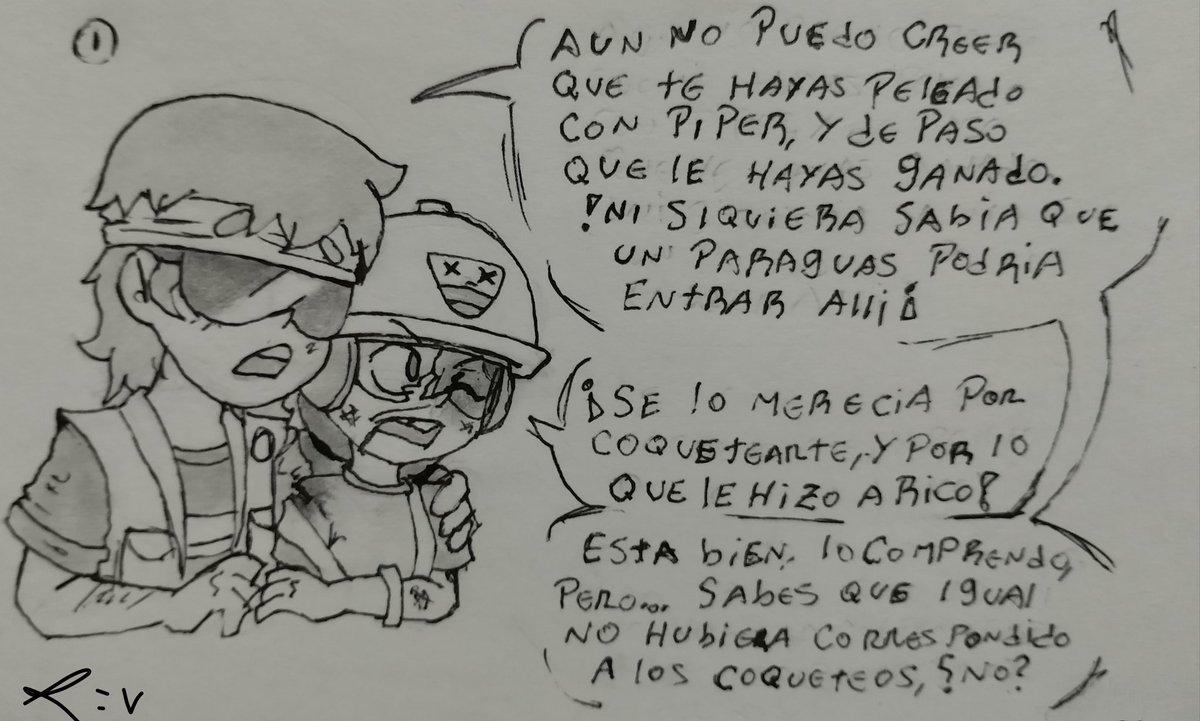 1
AUN NO PUEdO CREER
QUE tE HAYAS PELEAdO
CON PIPER, Y dE PASO
QUE lE HAYAS gANAdO.
!NI SIQUiERA SAbíA QUE
UN PARAGUAS POdRIA
ENtRAR Allí¡
¡SE lO MERECIA POR
COQUEtEARtE, Y POR lO
QUE lE HiZO A RICO!
EStA biEN, lO COMPRENdO,
PERO... SABES QUE IGUAl
NO HUbiERA CORRESPONdidO
A lOS COQUEtEOS, ¿NO?